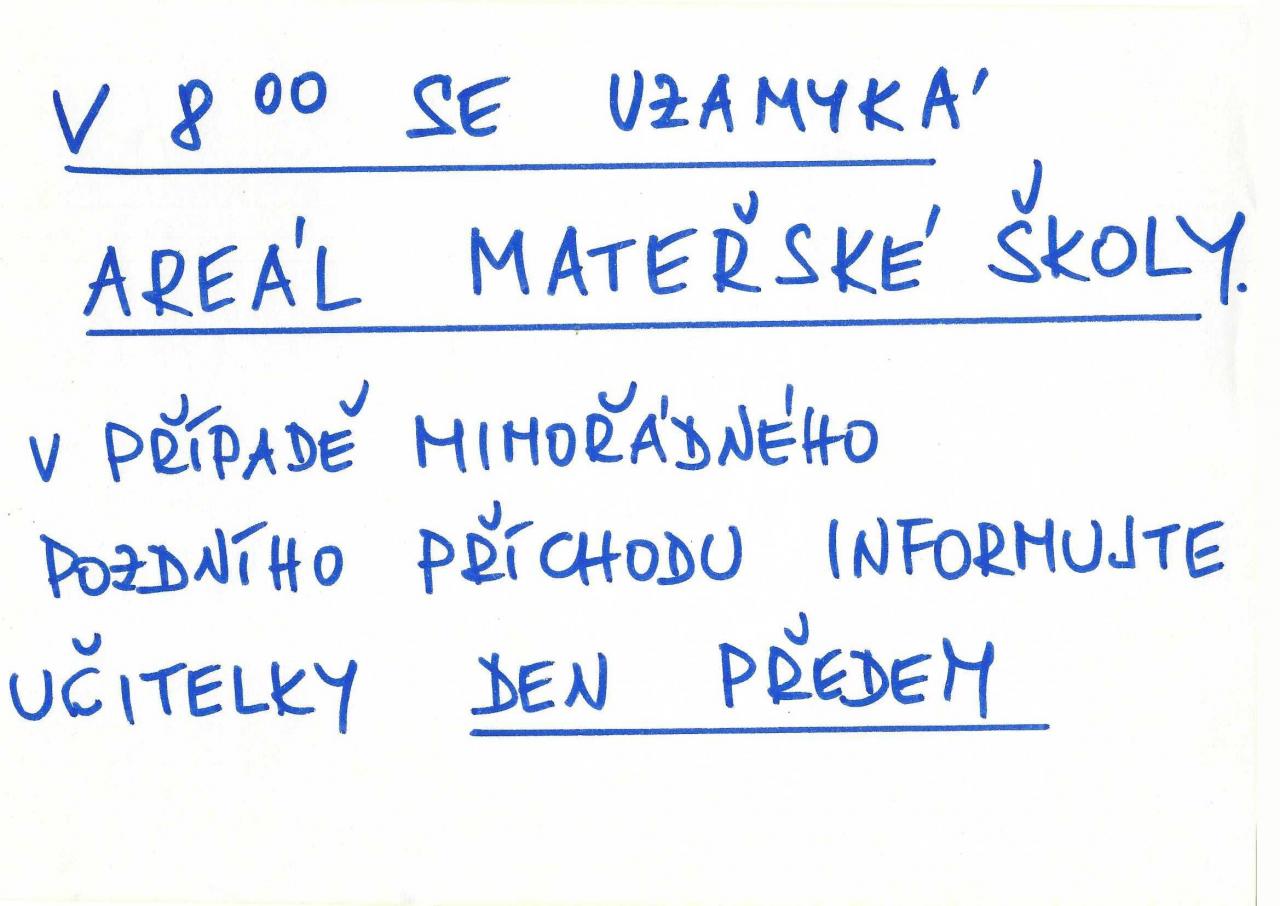 V 8⁰⁰ SE UZAMYKÁ
AREÁL MATEŘSKÉ ŠKOLY.
V PŘÍPADĚ MIMOŘÁDNÉHO
POZDNÍHO PŘÍCHODU INFORMUJTE
UČITELKY DEN PŘEDEM